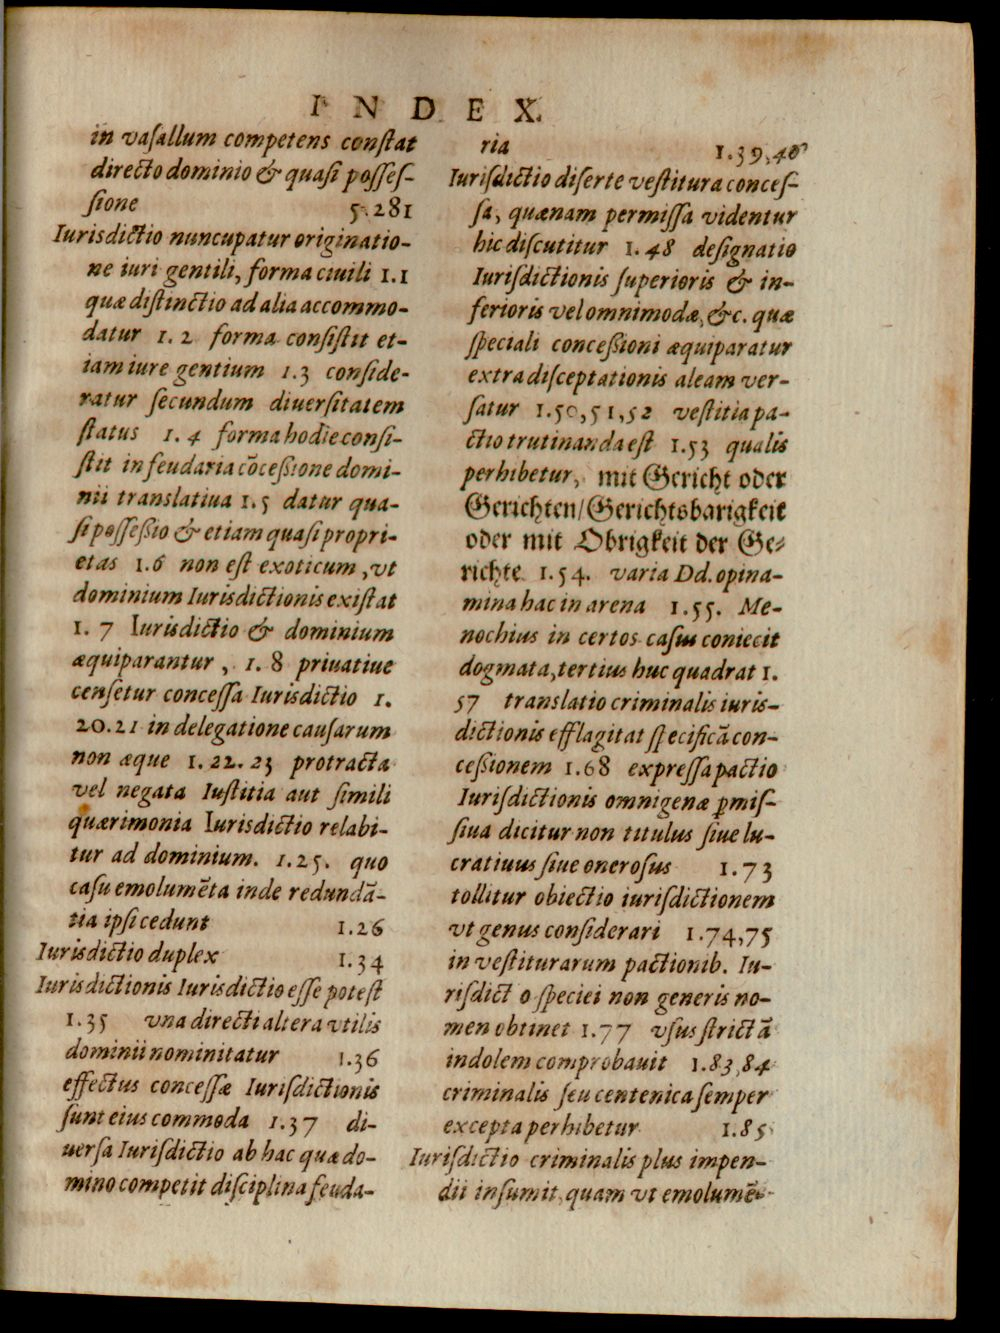 INDEX.
in vaſallum competens conſtat
directo dominio & quaſi poſſeſ-
ſione 5.281
Iurisdictio nuncupatur originatio-
ne iuri gentili, forma ciuili 1.1
quæ diſtinctio ad alia accommo-
datur 1.2 forma conſiſtit et-
iam iure gentium 1.3 conſide-
ratur ſecundum diuerſitatem
ſtatus 1.4 forma hodie conſi-
ſtit in feudaria cõceßione domi-
nii translatiua 1.5 datur qua-
ſi poſſeßio & etiam quaſi propri-
etas 1.6 non eſt exoticum, vt
dominium Iurisdictionis exiſtat
1.7 Iurisdictio & dominium
æquiparantur, 1.8 priuatiue
cenſetur conceſſa Iurisdictio 1.
20.21 in delegatione cauſarum
non æque 1.22.23 protracta
vel negata Iuſtitia aut ſimili
quærimonia Iurisdictio relabi-
tur ad dominium. 1.25. quo
caſu emolumẽta inde redundã-
tia ipſi cedunt 1.26
Iurisdictio duplex 1.34
Iurisdictionis Iurisdictio eſſe poteſt
1.35 vna directi altera vtilis
dominii nominitatur 1.36
effectus conceſſæ Iuriſdictionis
ſunt eius commoda 1.37 di-
uerſa Iuriſdictio ab hac quæ do-
mino competit diſciplina feuda-
ria 1.39,40
Iuriſdictio diſerte veſtitura conceſ-
ſa, quænam permiſſa videntur
hic diſcutitur 1.48 deſignatio
Iuriſdictionis ſuperioris & in-
ferioris vel omnimodæ, &c. quæ
ſpeciali conceßioni æquiparatur
extra diſceptationis aleam ver-
ſatur 1.50,51,52 veſtitia pa-
ctio trutinanda eſt 1.53 qualis
perhibetur, mit Gericht oder
Gerichten/Gerichtsbarigkeit
oder mit Obrigkeit der Ge-
richte 1.54. varia Dd. opina-
mina hac in arena 1.55. Me-
nochius in certos caſus coniecit
dogmata, tertius huc quadrat 1.
57 translatio criminalis iuris-
dictionis efflagitat ſpecificã con-
ceßionem 1.68 expreſſa pactio
Iuriſdictionis omnigenæ ꝑmiſ-
ſiua dicitur non titulus ſiue lu-
cratiuus ſiue oneroſus 1.73
tollitur obiectio iuriſdictionem
vt genus conſiderari 1.74,75
in veſtiturarum pactionib. Iu-
riſdictio ſpeciei non generis no-
men obtinet 1.77 vſus ſtrictã
indolem comprobauit 1.83,84
criminalis ſeu centenica ſemper
excepta perhibetur 1.85
Iuriſdictio criminalis plus impen-
dii inſumit, quam vt emolumẽ-